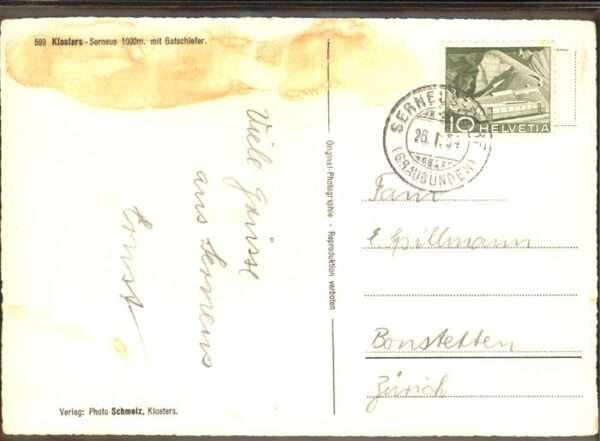 599 Klosters - Serneus 1000m. mit Gatschiefer.
Viele Grüsse
aus Serneus
Ernst
Verlag: Photo Schmelz, Klosters.
Original-Photographie - Reproduktion verboten
10 HELVETIA
SERNEUS
26. I. 51
(GRAUBÜNDEN)
Fam.
E. Spillmann
Bonstetten
Zürich